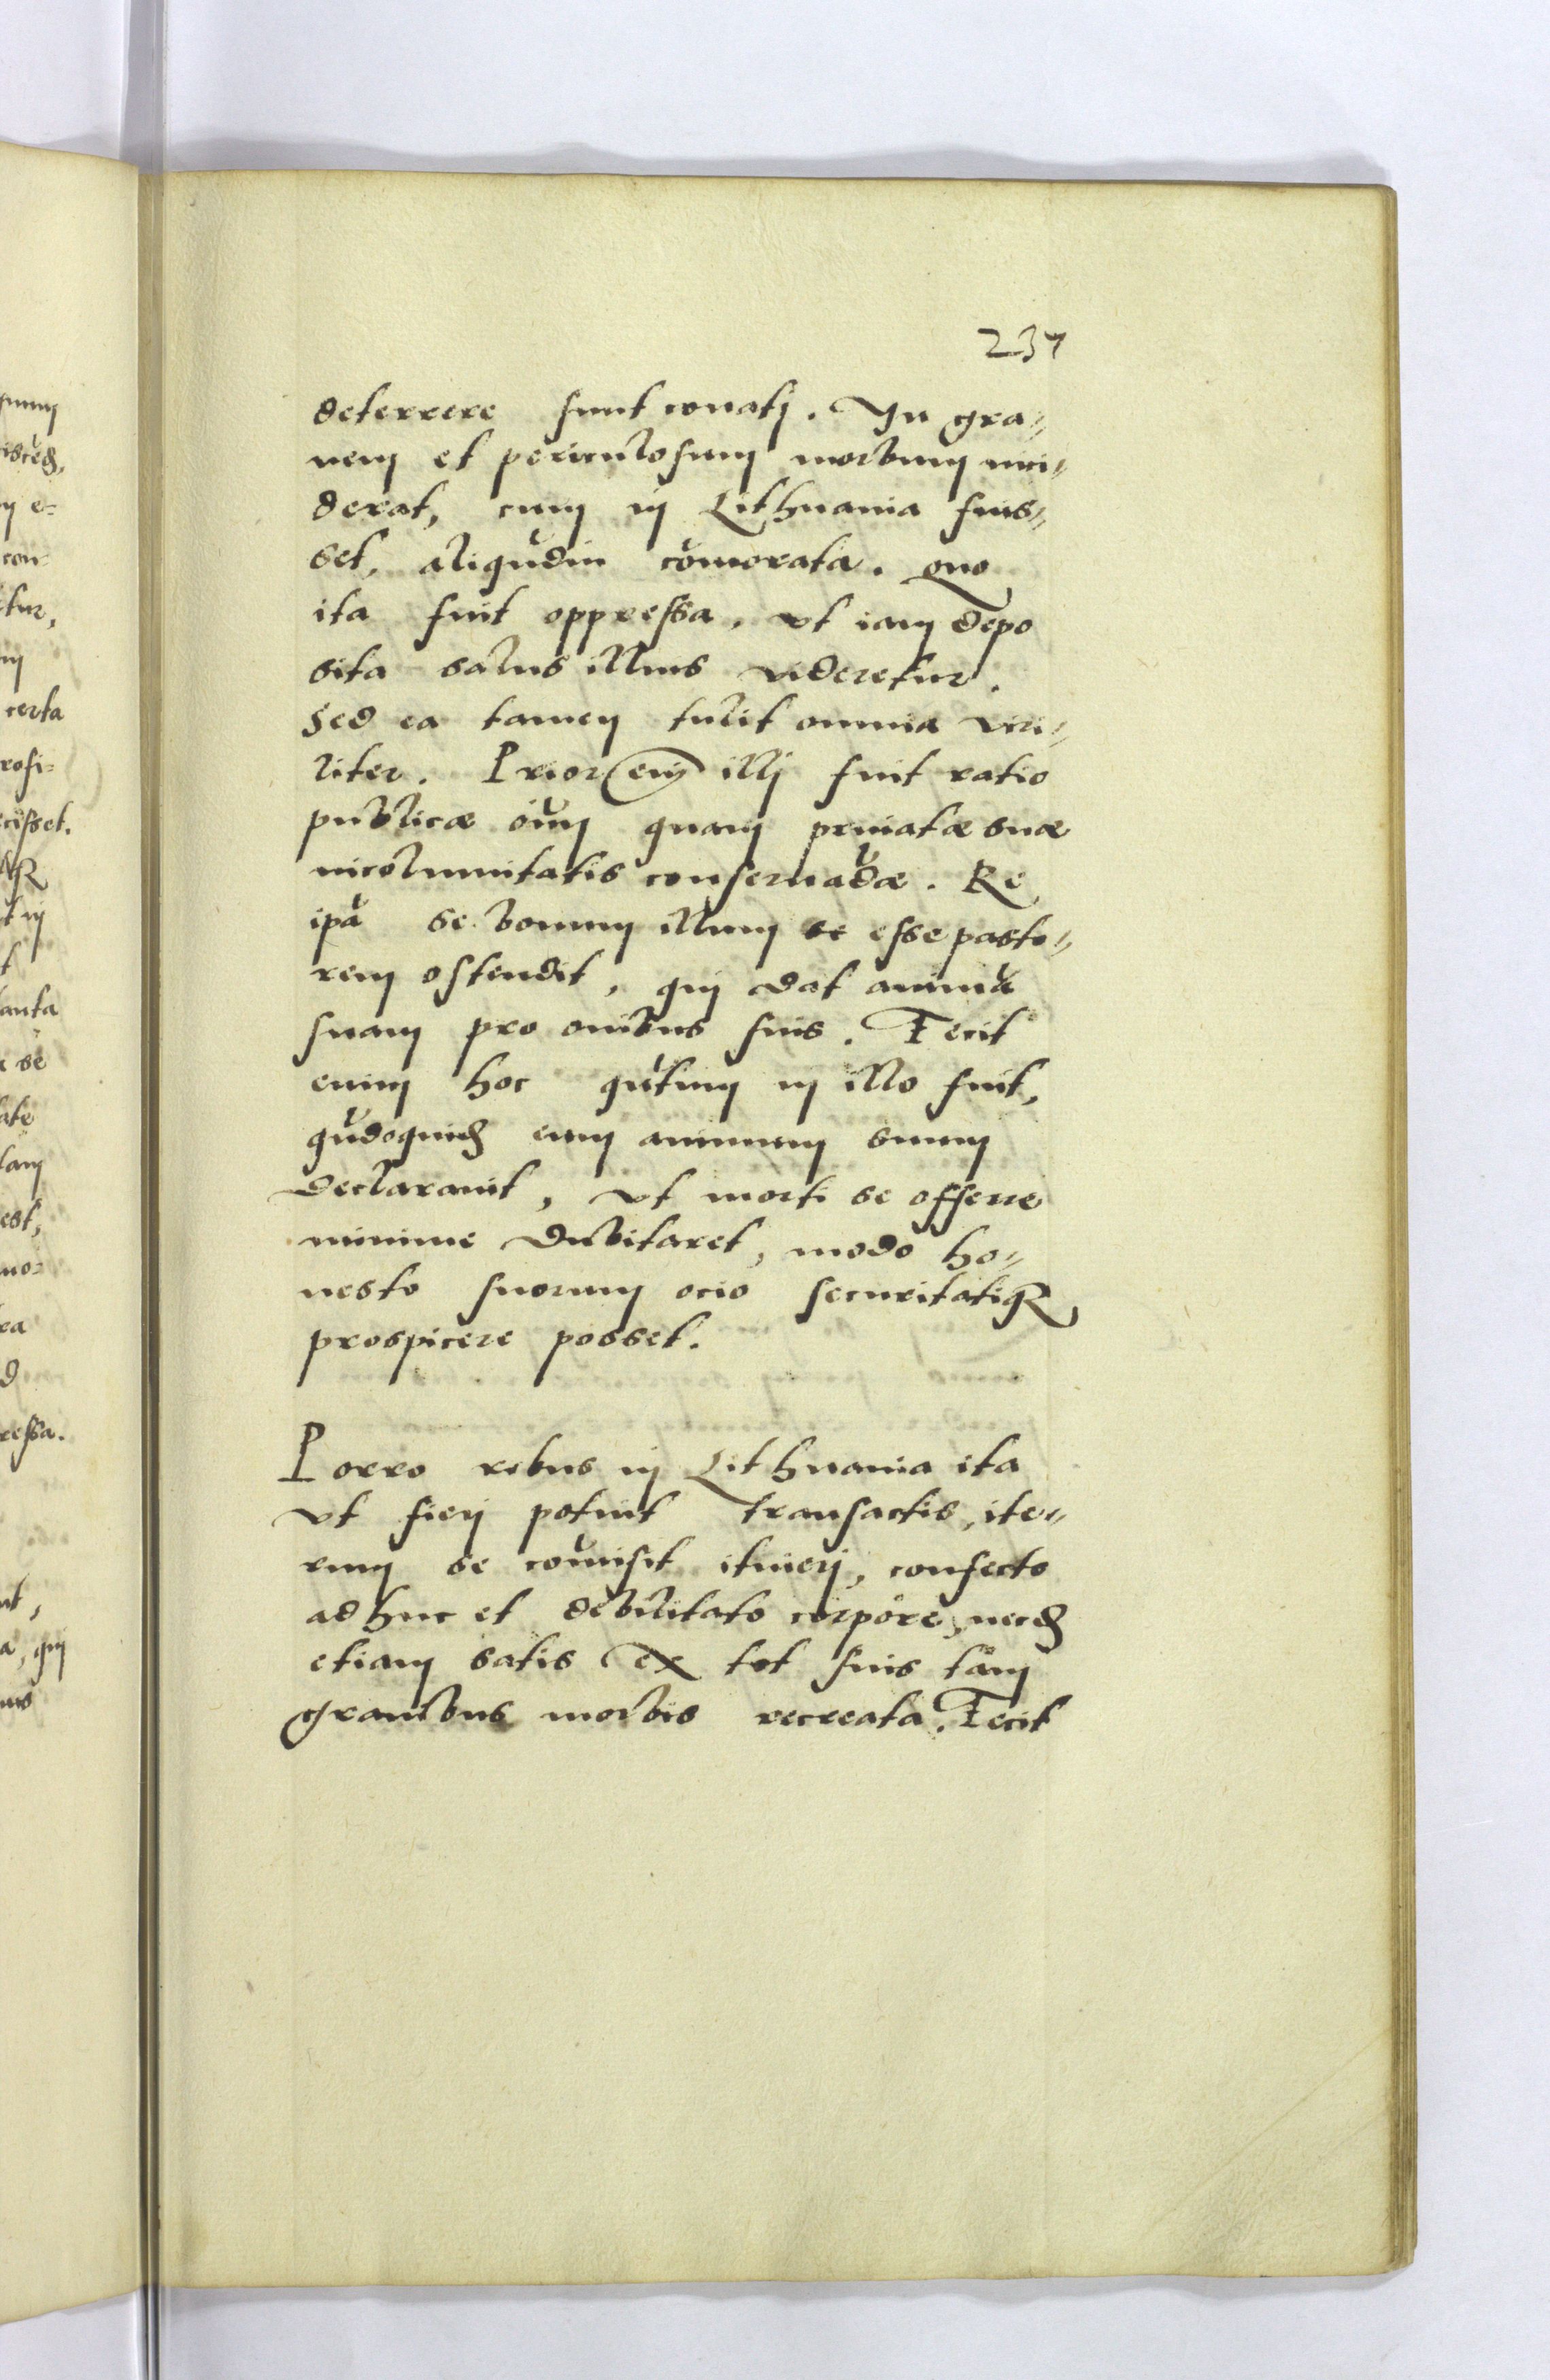 237
deterrere sunt conatj. In gra=
uem et periculosum morbum inci=
derat, cum in Lithuania fuis=
set, aliqũdiu cõmorata. quo
ita fuit oppressa, vt iam depo
sita salus illius videretur.
Sed ea tamen tulit omnia viri=
liter. Prior em̃ illj fuit ratio
publicæ õum quam priuatæ suæ
incolumitatis conseruãdæ. Re
ipã se bonum illum se esse pasto=
rem ostendit, qui dat animã
suam pro ouibus suis. Fecit
enim hoc qũtum in illo fuit,
qũdoquid eum animum suum
declarauit, vt morti se offerre
minime dubitaret, modo ho=
nesto suorum ocio securitatiq
prospicere posset.
Porro rebus in Lithuania ita
vt fierj potuit transactis, ite=
rum se cõmisit itinerj, confecto
adhuc et debilitato corpore, necd
etiam satis ex tot suis tam
grauibus morbis recreata. Fecit
certa
cisset.
anta
se
est,
ressa.
a, qui